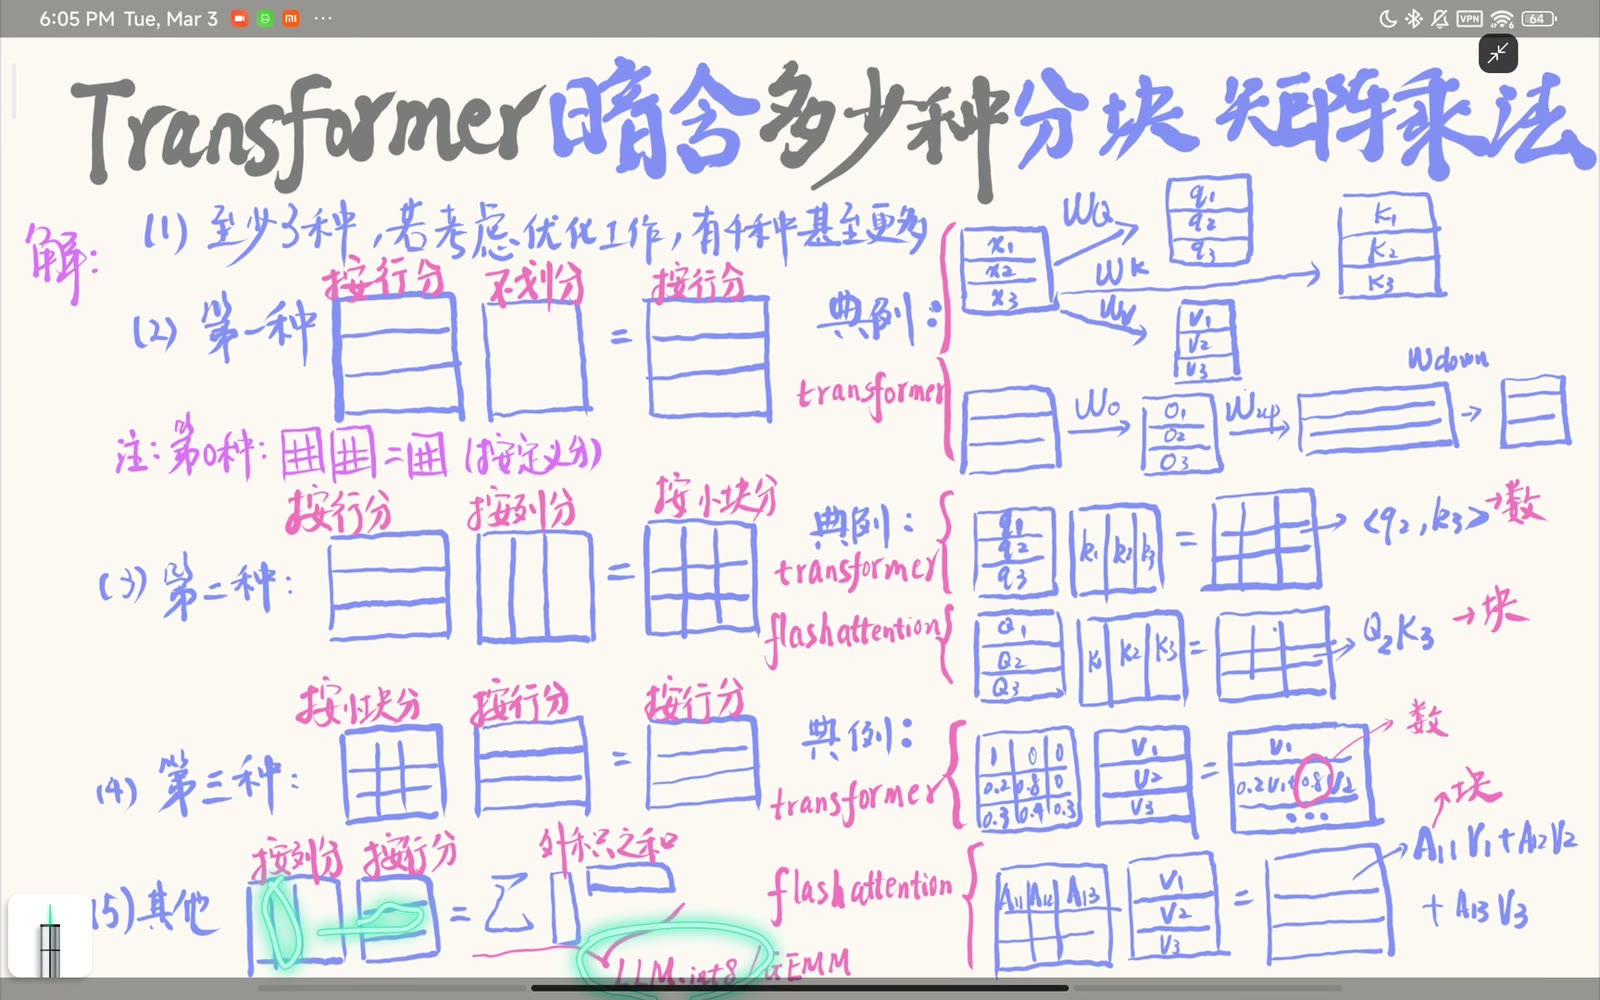 6:05 PM Tue, Mar 3
VPN
64
Transformer暗含多少种分块矩阵乘法
解:
(1) 至少3种,若考虑优化工作,有4种甚至更多
按行分 不划分 按行分
(2) 第一种 =
典例:
transformer
x1
x2
x3
WQ
WK
WV
q1
q2
q3
K1
K2
K3
V1
V2
V3
WO
O1
O2
O3
Wup
Wdown
注:第0种: = (按定义分)
按行分 按列分 按小块分
(3) 第二种: =
典例:
transformer
q1
q2
q3
k1 k2 k3 = <q2,k3> →数
flashattention
Q1
Q2
Q3
K1 K2 K3 = Q2K3 →块
按小块分 按行分 按行分
(4) 第三种: =
典例:
transformer
1 0 0
0.2 0.8 0
0.3 0.4 0.3
V1
V2
V3
=
V1
0.2V1+0.8V2
...
数
flashattention
A11 A12 A13
V1
V2
V3
=
块
A11V1+A12V2
+A13V3
按列分 按行分 外积之和
(5)其他 = Σ
LLM.int8/GEMM